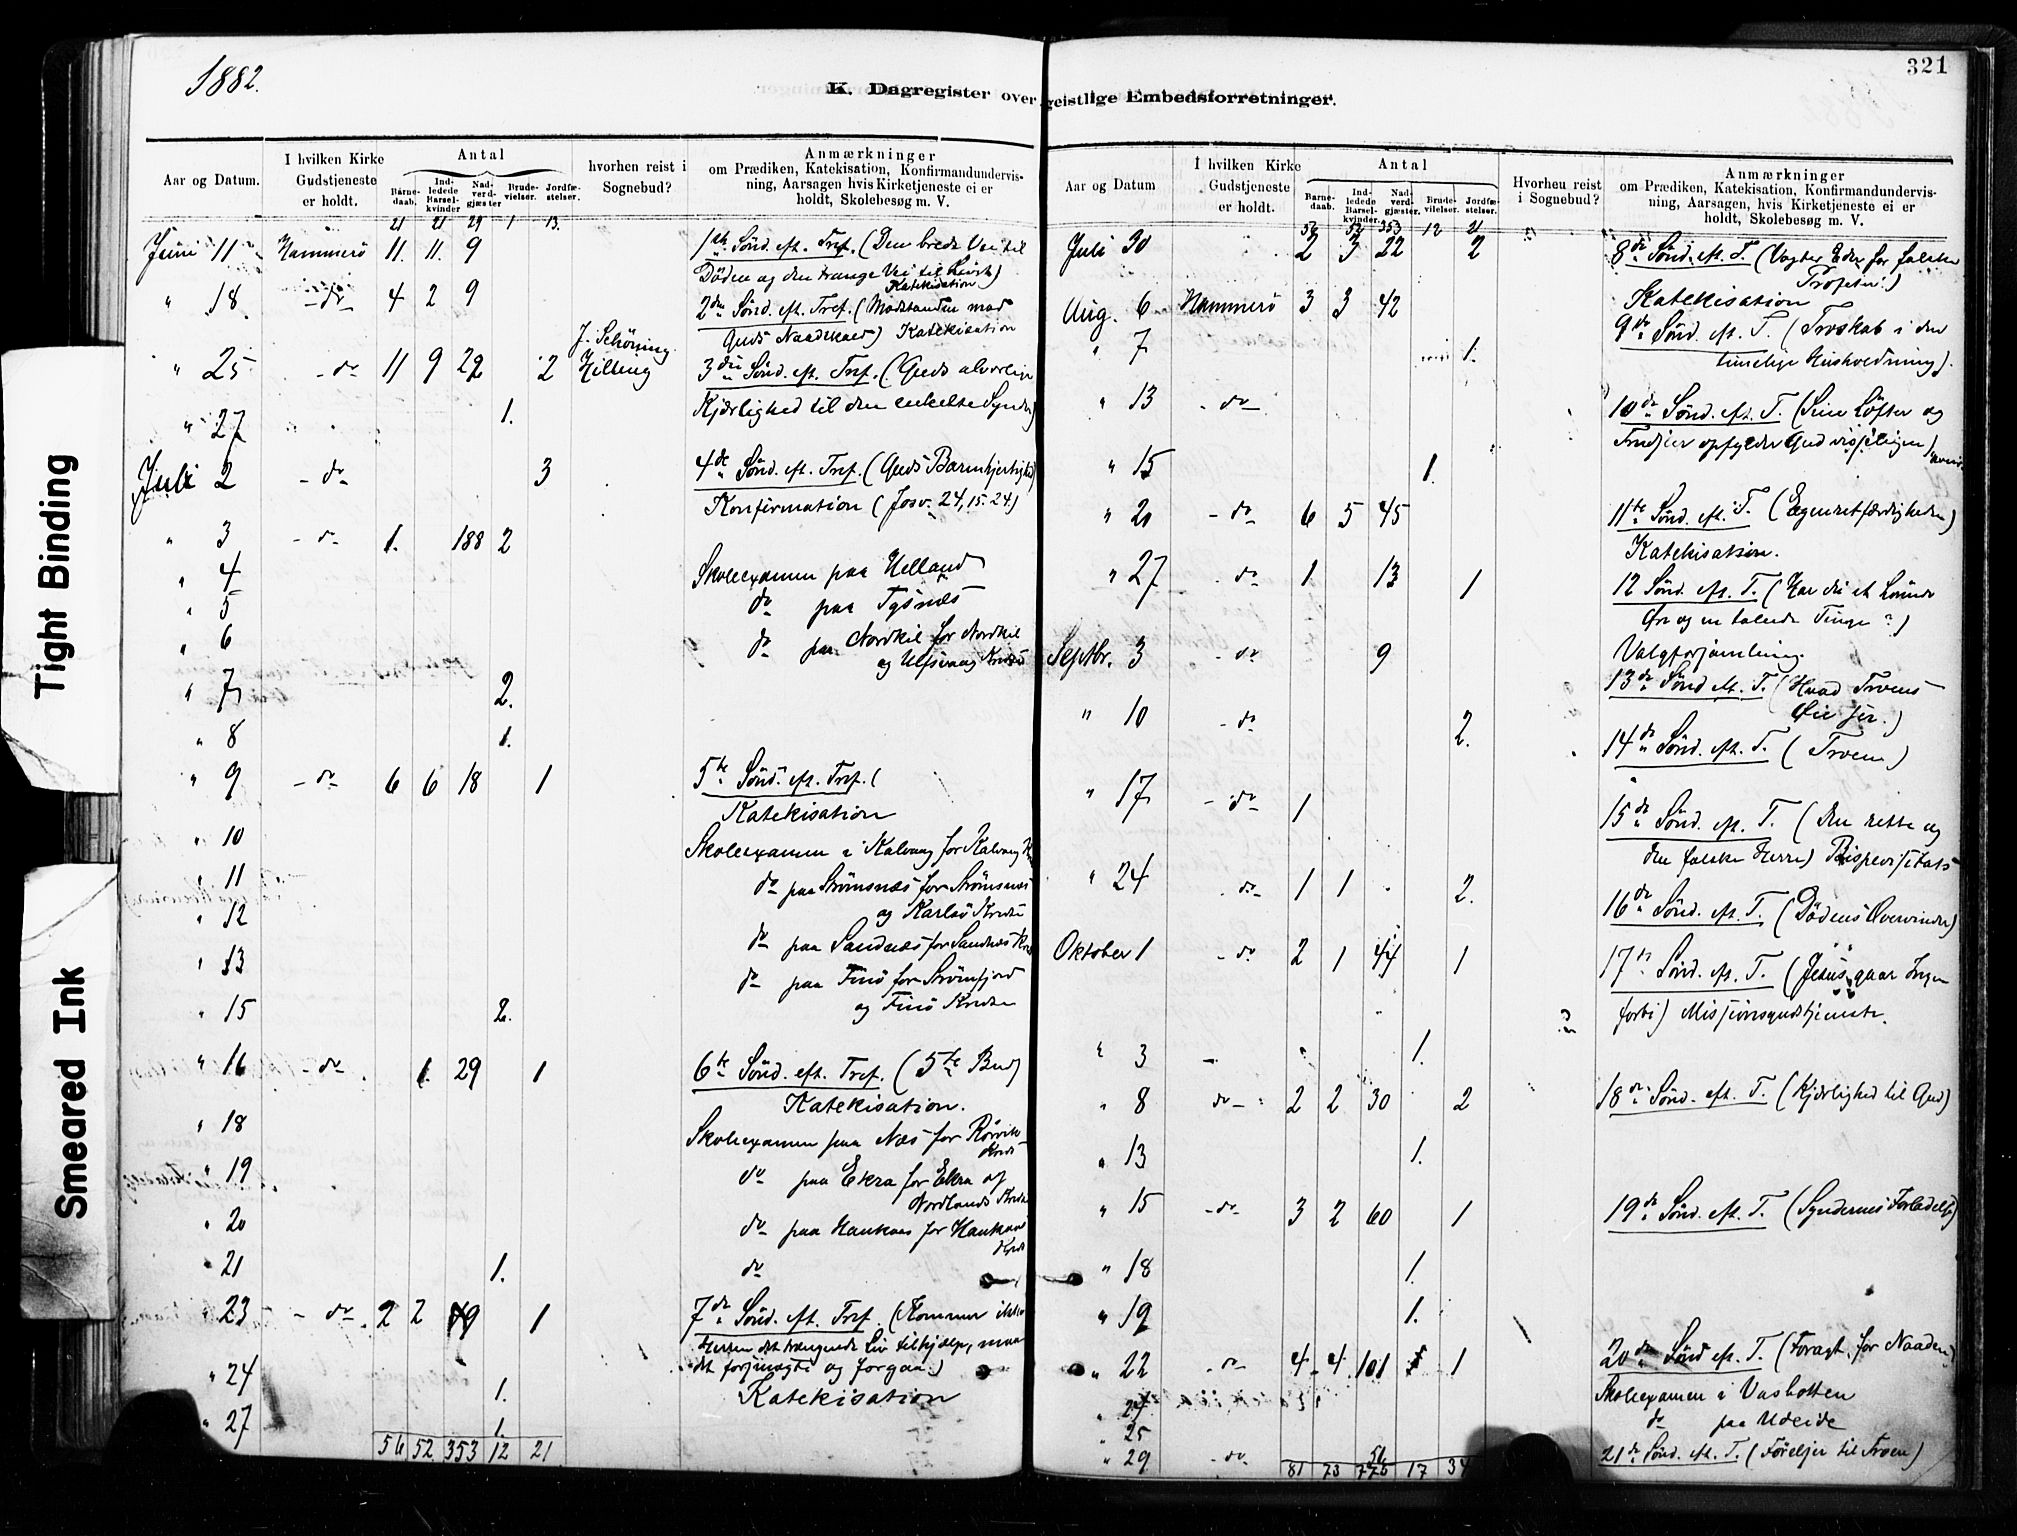 Tight Binding
Smeared Ink
1882.
321
K. Dagregister over geistlige Embedsforretninger.
Aar og Datum.
I hvilken Kirke
Gudstjeneste
er holdt.
Antal
Barne-
daab.
Ind-
ledede
Barsel-
kvinder
Nad-
verd-
gjæster
Brude-
vielser.
Jordfæ-
stelser.
hvorhen reist i
Sognebud?
Anmærkninger
om Prædiken, Katekisation, Konfirmandundervis-
ning, Aarsagen hvis Kirketjeneste ei er
holdt, Skolebesøg m. V.
21 21 29 1 13.
Juni 11 Hammerø 11. 11. 9 1ste Sønd. eft. Tref. (Den brede Vei til
Döden og den trange Vei til Livet)
Katekisation
" 18 - do - 4 2 9 2den Sønd. eft. Tref. (Modstanden mod
Guds Naadekald) Katekisation
J. Schöning
" 25 - do 11 9 22 2 3die Sønd. eft. Tref. (Guds alvorlige
Kjærlighed til den enkelte Synder)
" 27 1.
Juli 2 - do 3 4de Sønd. eft. Tref. (Guds Barmhjertighed)
Konfirmation (Josv. 24, 15-24)
" 3 - do 1. 188 2
" 4 Skoleexamen paa Helland
" 5 do paa Tysnæs
" 6 do paa Nordkil for Nordkil
og Ulfsvaag Kredse
" 7 2.
" 8 1.
" 9 - do 6 6 18 1 5te Sønd. eft. Tref. (
Katekisation
" 10 Skoleexamen i Kalvaag for Kalvaag
" 11 do paa Strømsnæs for Strømsnæs
" 12 og Karlsö Kredse
do paa Sandnæs for Sandnæs
" 13 do paa Finö for Strømfjord
og Finö Kredse
" 15 2.
" 16 - do 1. 29 1 6te Sønd. eft. Tref. (5te Bud)
Katekisation.
" 18 Skoleexamen paa Næs for Rörvik
Kreds
" 19 do paa Ekra for Ekra og
Nordlands Kredse
" 20 do paa Haukaas for Haukaas
Kreds
" 21 1. do
" 23 - do 2 2 1 7de Sønd. eft. Tref. (Kommer ikke
Herren det trængende Liv tilhjælp, maa
det forsmægte og forgaa.)
" 24 1. Katekisation
" 27 1.
56 52 353 12 21
Aar og Datum
I hvilken Kirke
Gudstjeneste
er holdt.
Antal
Barne-
daab.
Ind-
ledede
Barsel-
kvinder.
Nad-
verd-
gjæster.
Brude-
vielser.
Jordfæ-
stelser.
Hvorheu reist
i Sognebud?
Anmærkninger
om Prædiken, Katekisation, Konfirmandundervis-
ning, Aarsagen, hvis Kirketjeneste ei er
holdt, Skolebesøg m. V.
56 52 353 12 21
Juli 30 2 3 22 2 8de Sønd. eft. T. (Vogter Eder for falske
Profeter.)
Katekisation
Aug. 6 Hammerö 3 3 42 9de Sønd. eft. T. (Troskab i den
timelige Husholdning).
" 7 1.
" 13 - do 10de Sønd. eft. T. (Sine Löfter og
Trudsler opfylder Gud visseligen)
" 15 1.
" 20 - do 6 5 45 11te Sønd. eft. T. (Egenretfærdigheden)
Katekisation.
" 27 - do 1 13 1 12 Sønd. eft. T. (Har du et hørende
Öre og en talende Tunge?)
Valgforsamling.
Septbr. 3 - do 9 13de Sønd eft. T. (Hvad Troens
Öie ser.)
" 10 - do 2. 14de Sønd. eft. T. (Troen)
" 17 - do 1 15de Sønd. eft. T. (Den rette og
den falske Herre) Bispevisitats
" 24 - do 1 1 2. 16de Sønd. eft. T. (Dödens Overvinder)
Oktober 1 - do 2 1 44 1 17de Sønd. eft. T. (Jesus gaar Ingen
forbi) Missionsgudstjeneste.
" 3 - 1.
" 8 do - 2 2 30 2 18de Sønd. eft. T. (Kjærlighed til Gud)
" 13 1.
" 15 - do 3 2 60 1 19de Sønd. eft. T. (Syndernes Forladelse)
" 18 1.
" 19 1.
" 22 - do - 4 4 101 1 20de Sønd eft. T. (Foragt for Naaden)
" 24 Skoleexamen i Vasbotten
" 25 do paa Uleide
" 29 - do 21de Sønd. eft. T. (Förelser til Troen)
81 73 17 34